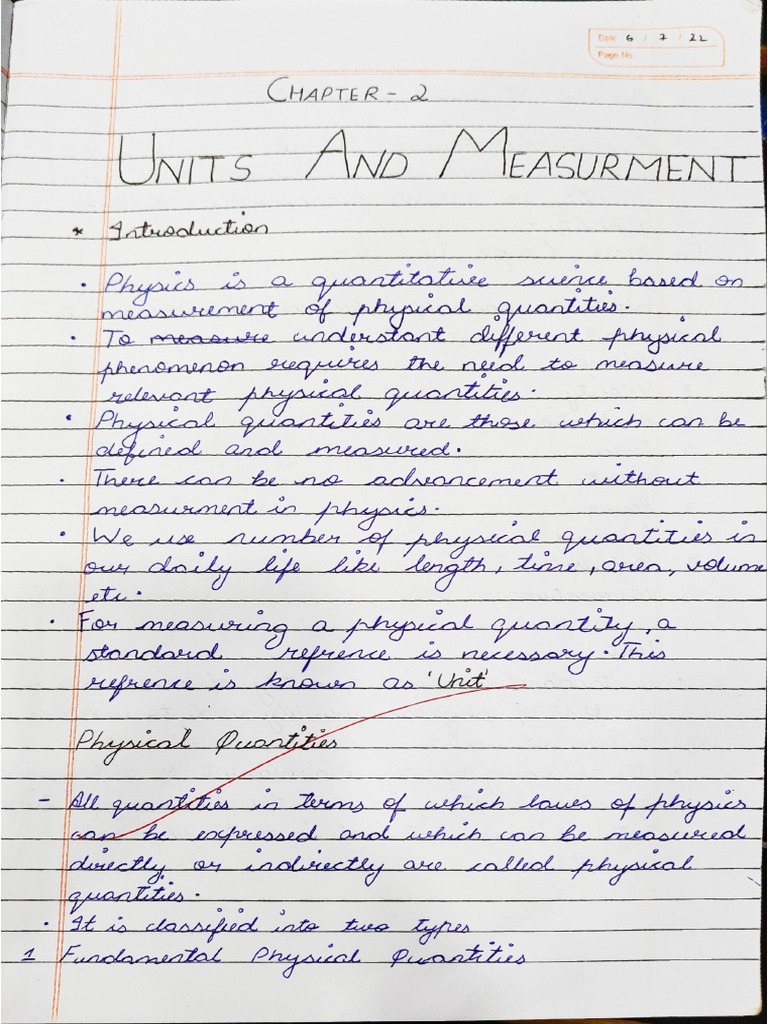 Date 6 / 7 / 22
Page No.
CHAPTER - 2
UNITS AND MEASURMENT
* Introduction
• Physics is a quantitative science based on
measurement of physical quantities.
• To measure understant different physical
phenomenon requires the need to measure
relevant physical quantities.
• Physical quantities are those which can be
defined and measured.
• There can be no advancement without
measurment in physics.
• We use number of physical quantities in
our daily life like length, time, area, volume
etc.
• For measuring a physical quantity, a
standard refrence is necessary. This
refrence is known as 'Unit'
Physical Quantities
- All quantities in terms of which laws of physics
can be expressed and which can be measured
directly or indirectly are called physical
quantities.
• It is classified into two types
1 Fundamental Physical Quantities